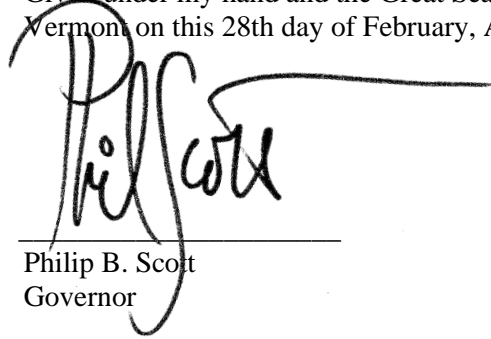 Given under my hand and the Great Sea
Vermont on this 28th day of February, A
Phil Scott
Philip B. Scott
Governor